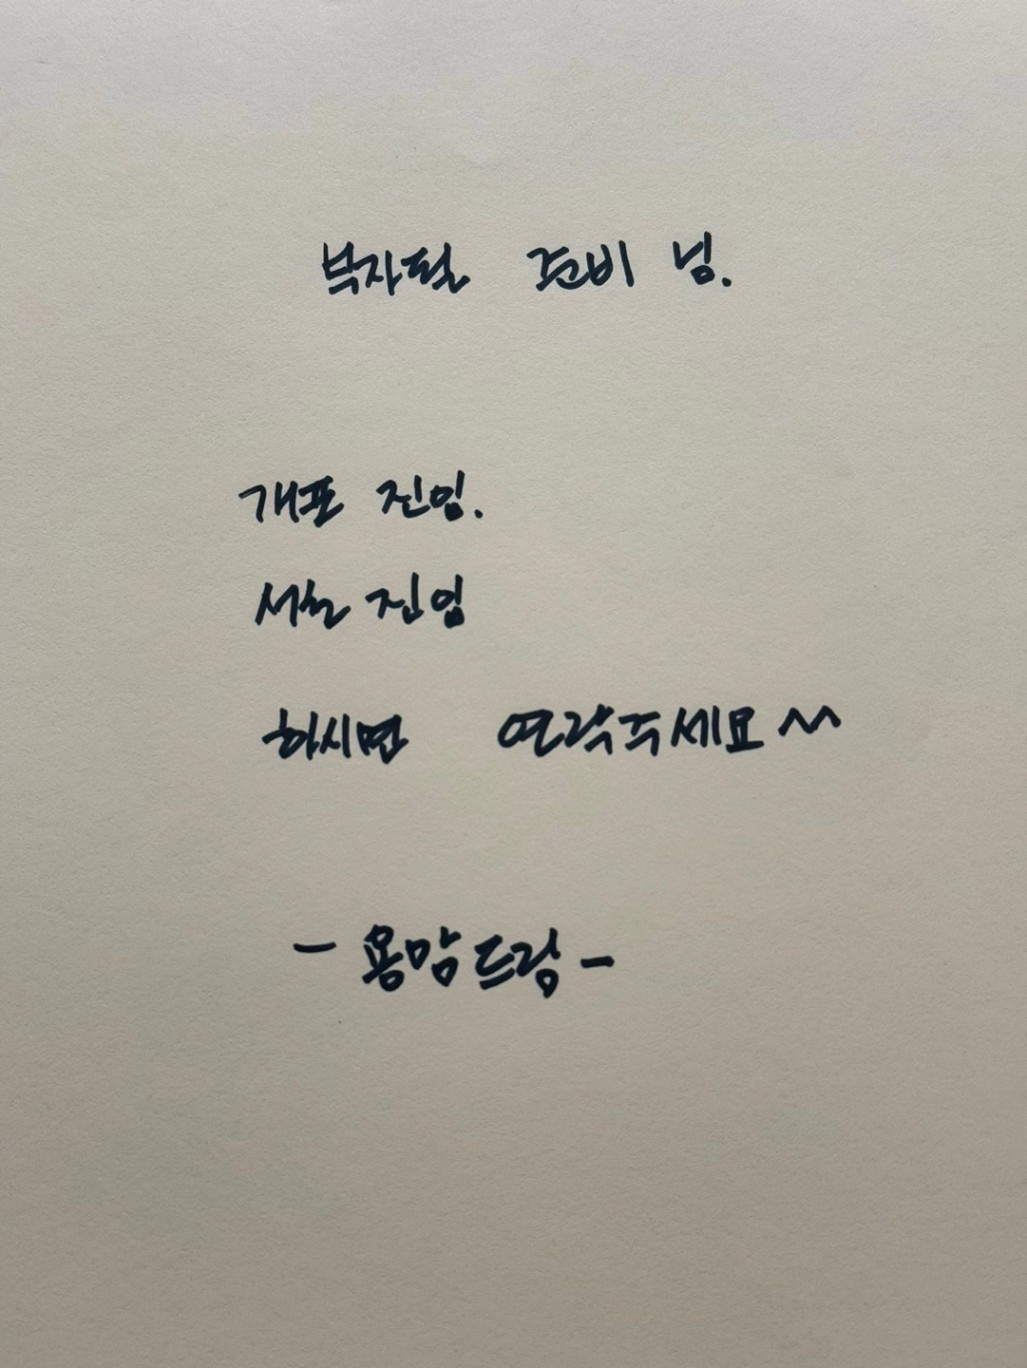 박자털 준비 넘.
개포 진입.
서초 진입
하시면 연락주세요 ^^
- 용맘드림 -